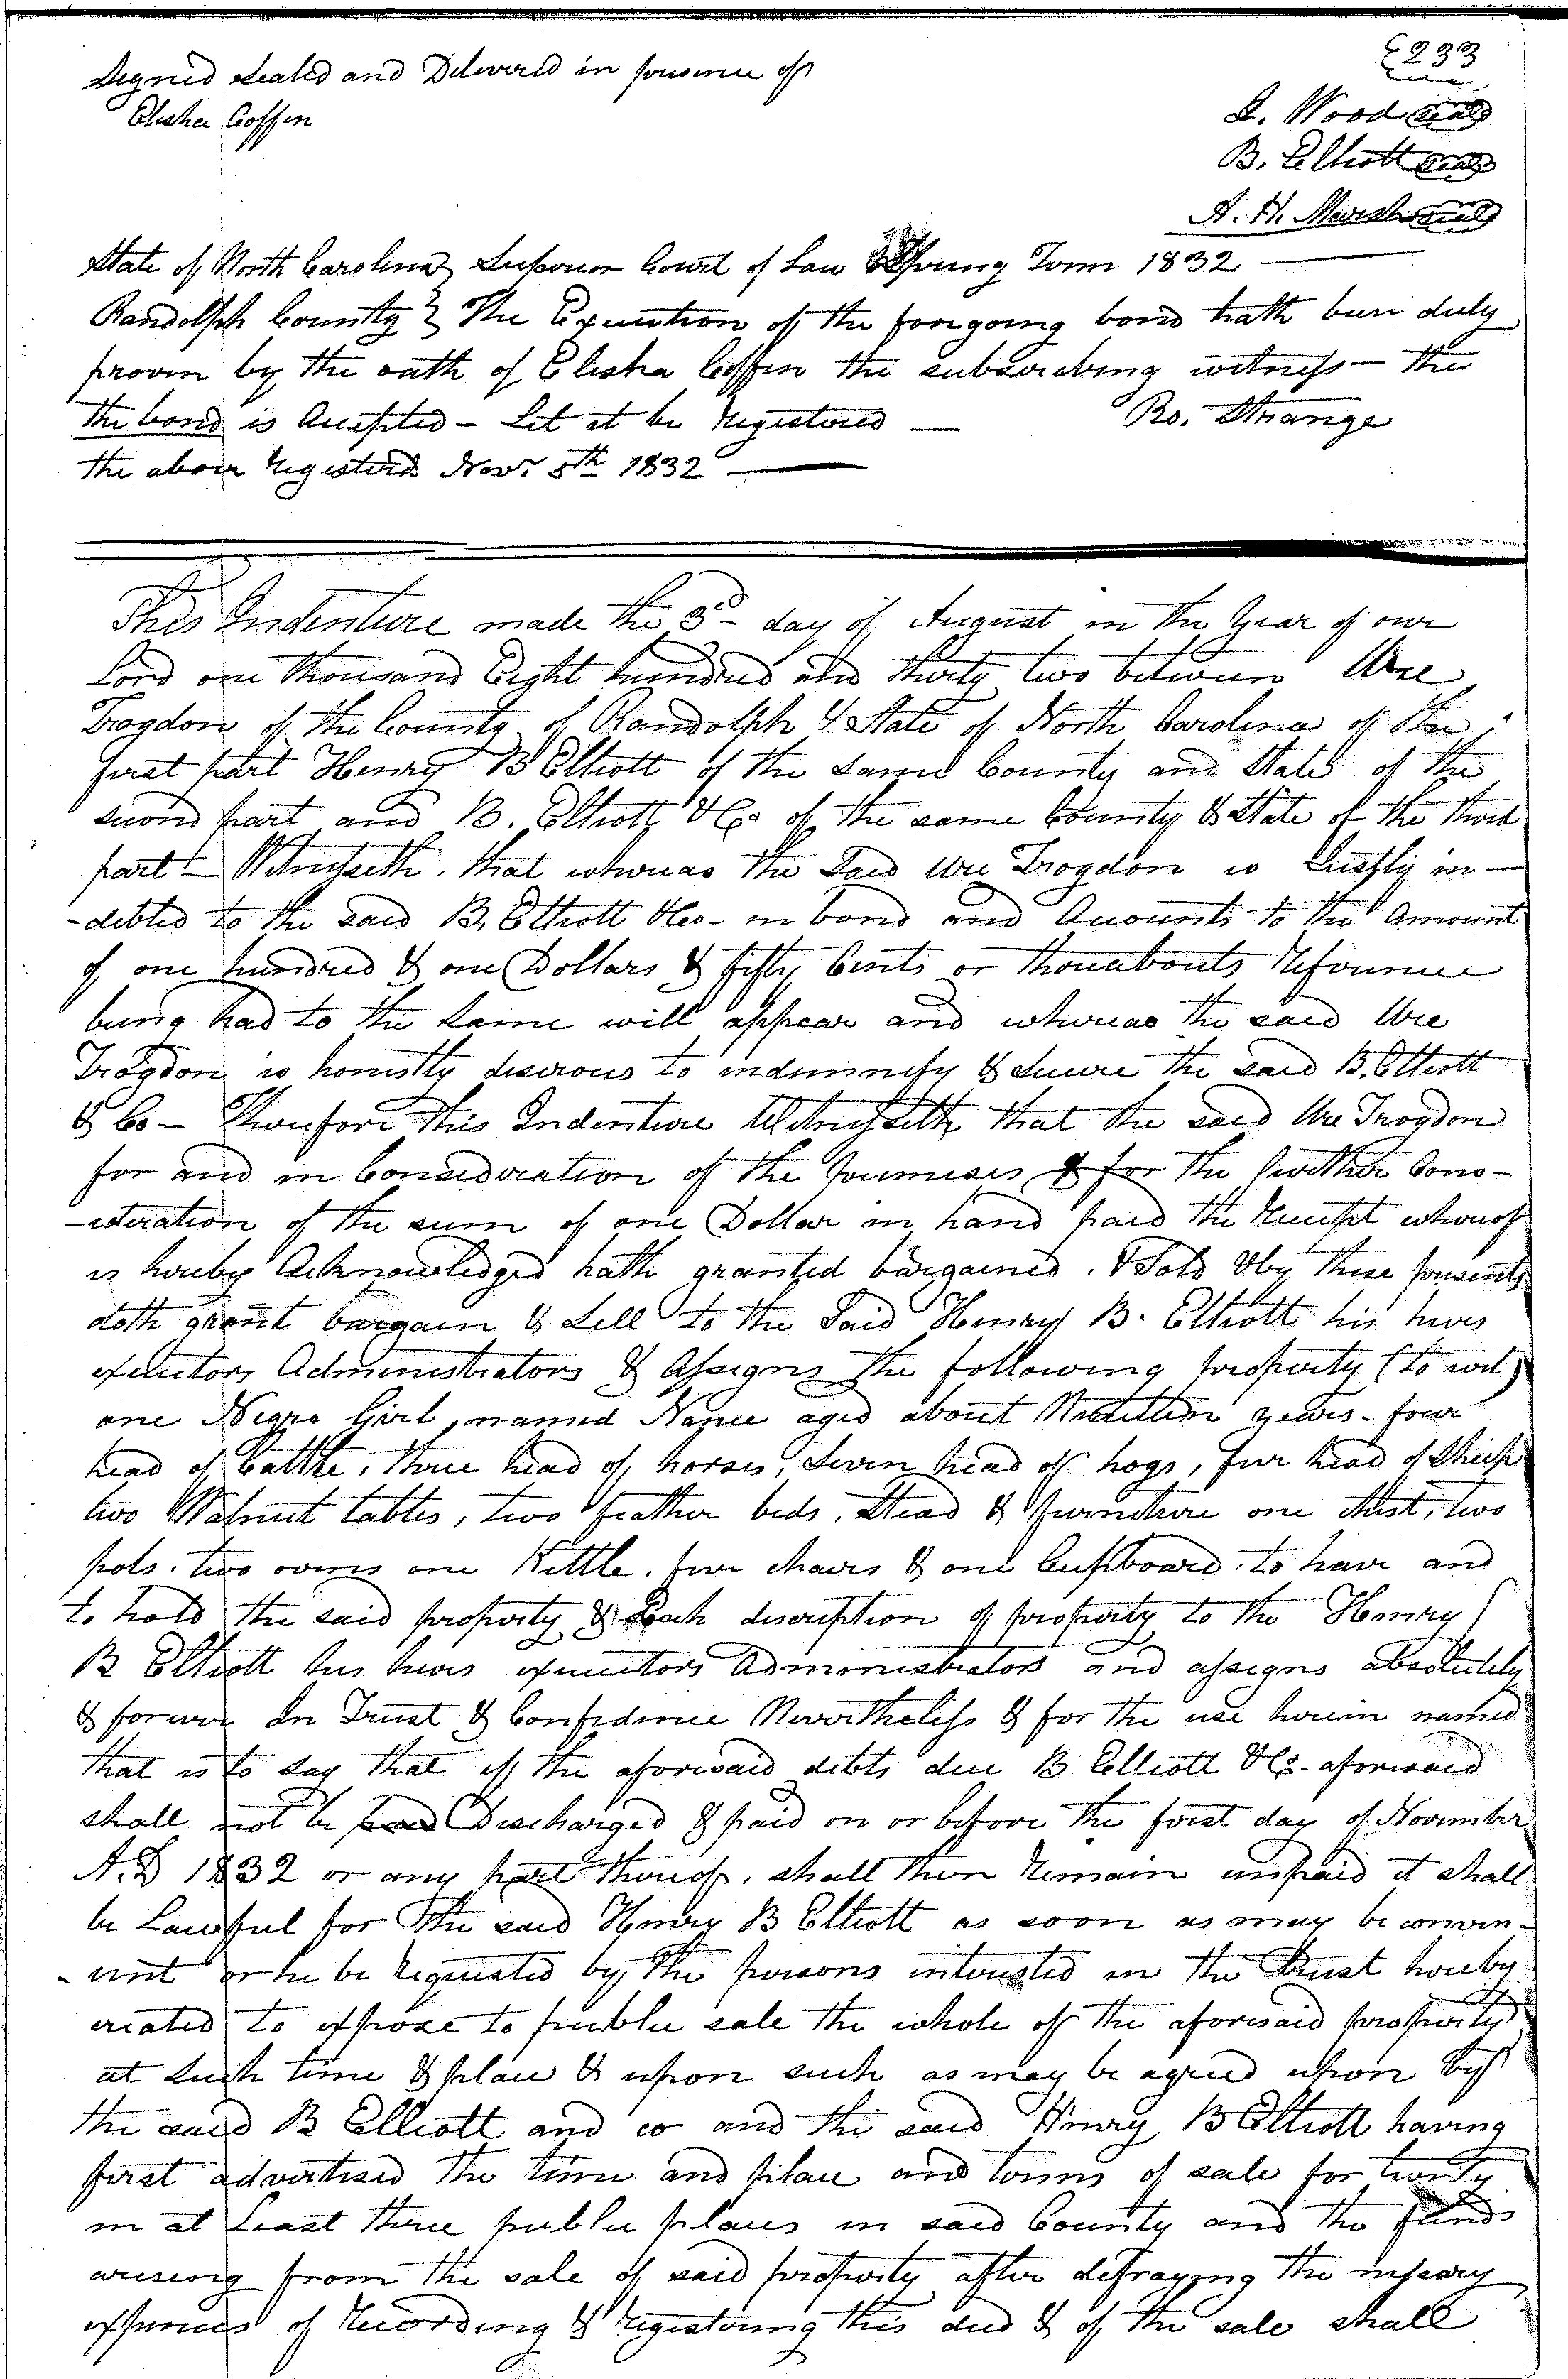 233
Signed Sealed and Delivered in presence of
Elisha Coffin
A. Wood Seal
B. Elliott Seal
A. H. Marsh Seal
State of North Carolina Superior Court of Law Spring Term 1832
Randolph County } The Execution of the foregoing bond hath been duly
proven by the oath of Elisha Coffin the subscribing witness — the
the bond is Accepted — Let it be Registered — Ro. Strange
the above Registered Nov. 5th 1832
This Indenture made the 3rd day of August in the Year of our
Lord one thousand Eight hundred and thirty two between Wre
Trogdon of the County of Randolph & State of North Carolina of the
first part Henry B Elliott of the same County and State of the
second part and B. Elliott & Co of the same County & State of the third
part — Witnesseth, that whereas the said Wre Trogdon is Justly in-
-debted to the said B. Elliott & Co — in bond and Accounts to the Amount
of one hundred & one Dollars & fifty Cents or thereabouts Reference
being had to the same will appear and whereas the said Wre
Trogdon is honestly desirous to indemnify & secure the said B. Elliott
& Co — Therefore this Indenture Witnesseth that the said Wre Trogdon
for and in Consideration of the premises & for the further Cons-
-ideration of the sum of one Dollar in hand paid the Receipt whereof
is hereby Acknowledged hath granted bargained, & Sold & by these presents
doth grant bargain & Sell to the Said Henry B. Elliott his heirs
executors Administrators & Assigns the following property (to wit)
one Negro Girl, named Nance aged about years — four
head of Cattle, three head of horses, seven head of hogs, five head of Sheep
two Walnut tables, two feather beds, Stead & furniture one chest, two
pots, two ovens one Kettle, five chairs & one Cupboard, to have and
to hold the said property & Each discription of property to the Henry
B Elliott his heirs executors Administrators and assigns absolutely
& forever In Trust & Confidence Nevertheless & for the use herein named
that is to say that if the aforesaid debts due B Elliott & Co. aforesaid
shall not be paid Discharged & paid on or before the first day of November
A.D 1832 or any part thereof, shall then Remain unpaid it shall
be Lawful for the said Henry B Elliott as soon as may be conven-
-ient or he be Requested by the persons interested in the trust hereby
created to expose to public sale the whole of the aforesaid property
at such time & place & upon such as may be agreed upon by
the said B Elliott and co and the said Henry B Elliott having
first advertised the time and place and terms of sale for twenty
in at Least three public places in said County and the funds
arising from the sale of said property after defraying the nessary
expences of Recording & Registering this deed & of the sale shall